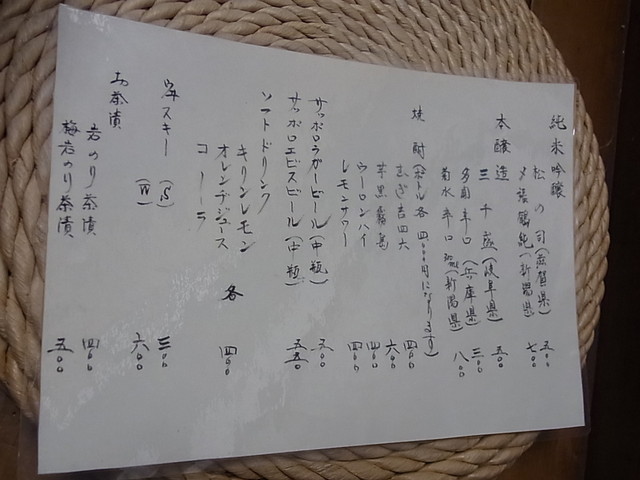 純米吟醸
松の司(滋賀県) 五〇〇
〆張鶴 純(新潟県) 七〇〇
本醸造
三千盛(岐阜県) 五〇〇
辛口(兵庫県) 三〇〇
菊水辛口(新潟県) 八〇〇
焼酎(ボトル各四〇〇〇円になります)
吉四六 四〇〇
芋黒霧島 六〇〇
ウーロンハイ 四〇〇
レモンサワー 四〇〇
サッポロラガービール(中瓶) 五〇〇
サッポロエビスビール(中瓶) 五五〇
ソフトドリンク
キリンレモン
オレンヂジュース 各 四〇〇
コーラ
ウイスキー (S) 三〇〇
(W) 六〇〇
お茶漬
岩のり茶漬 四〇〇
梅岩のり茶漬 五〇〇